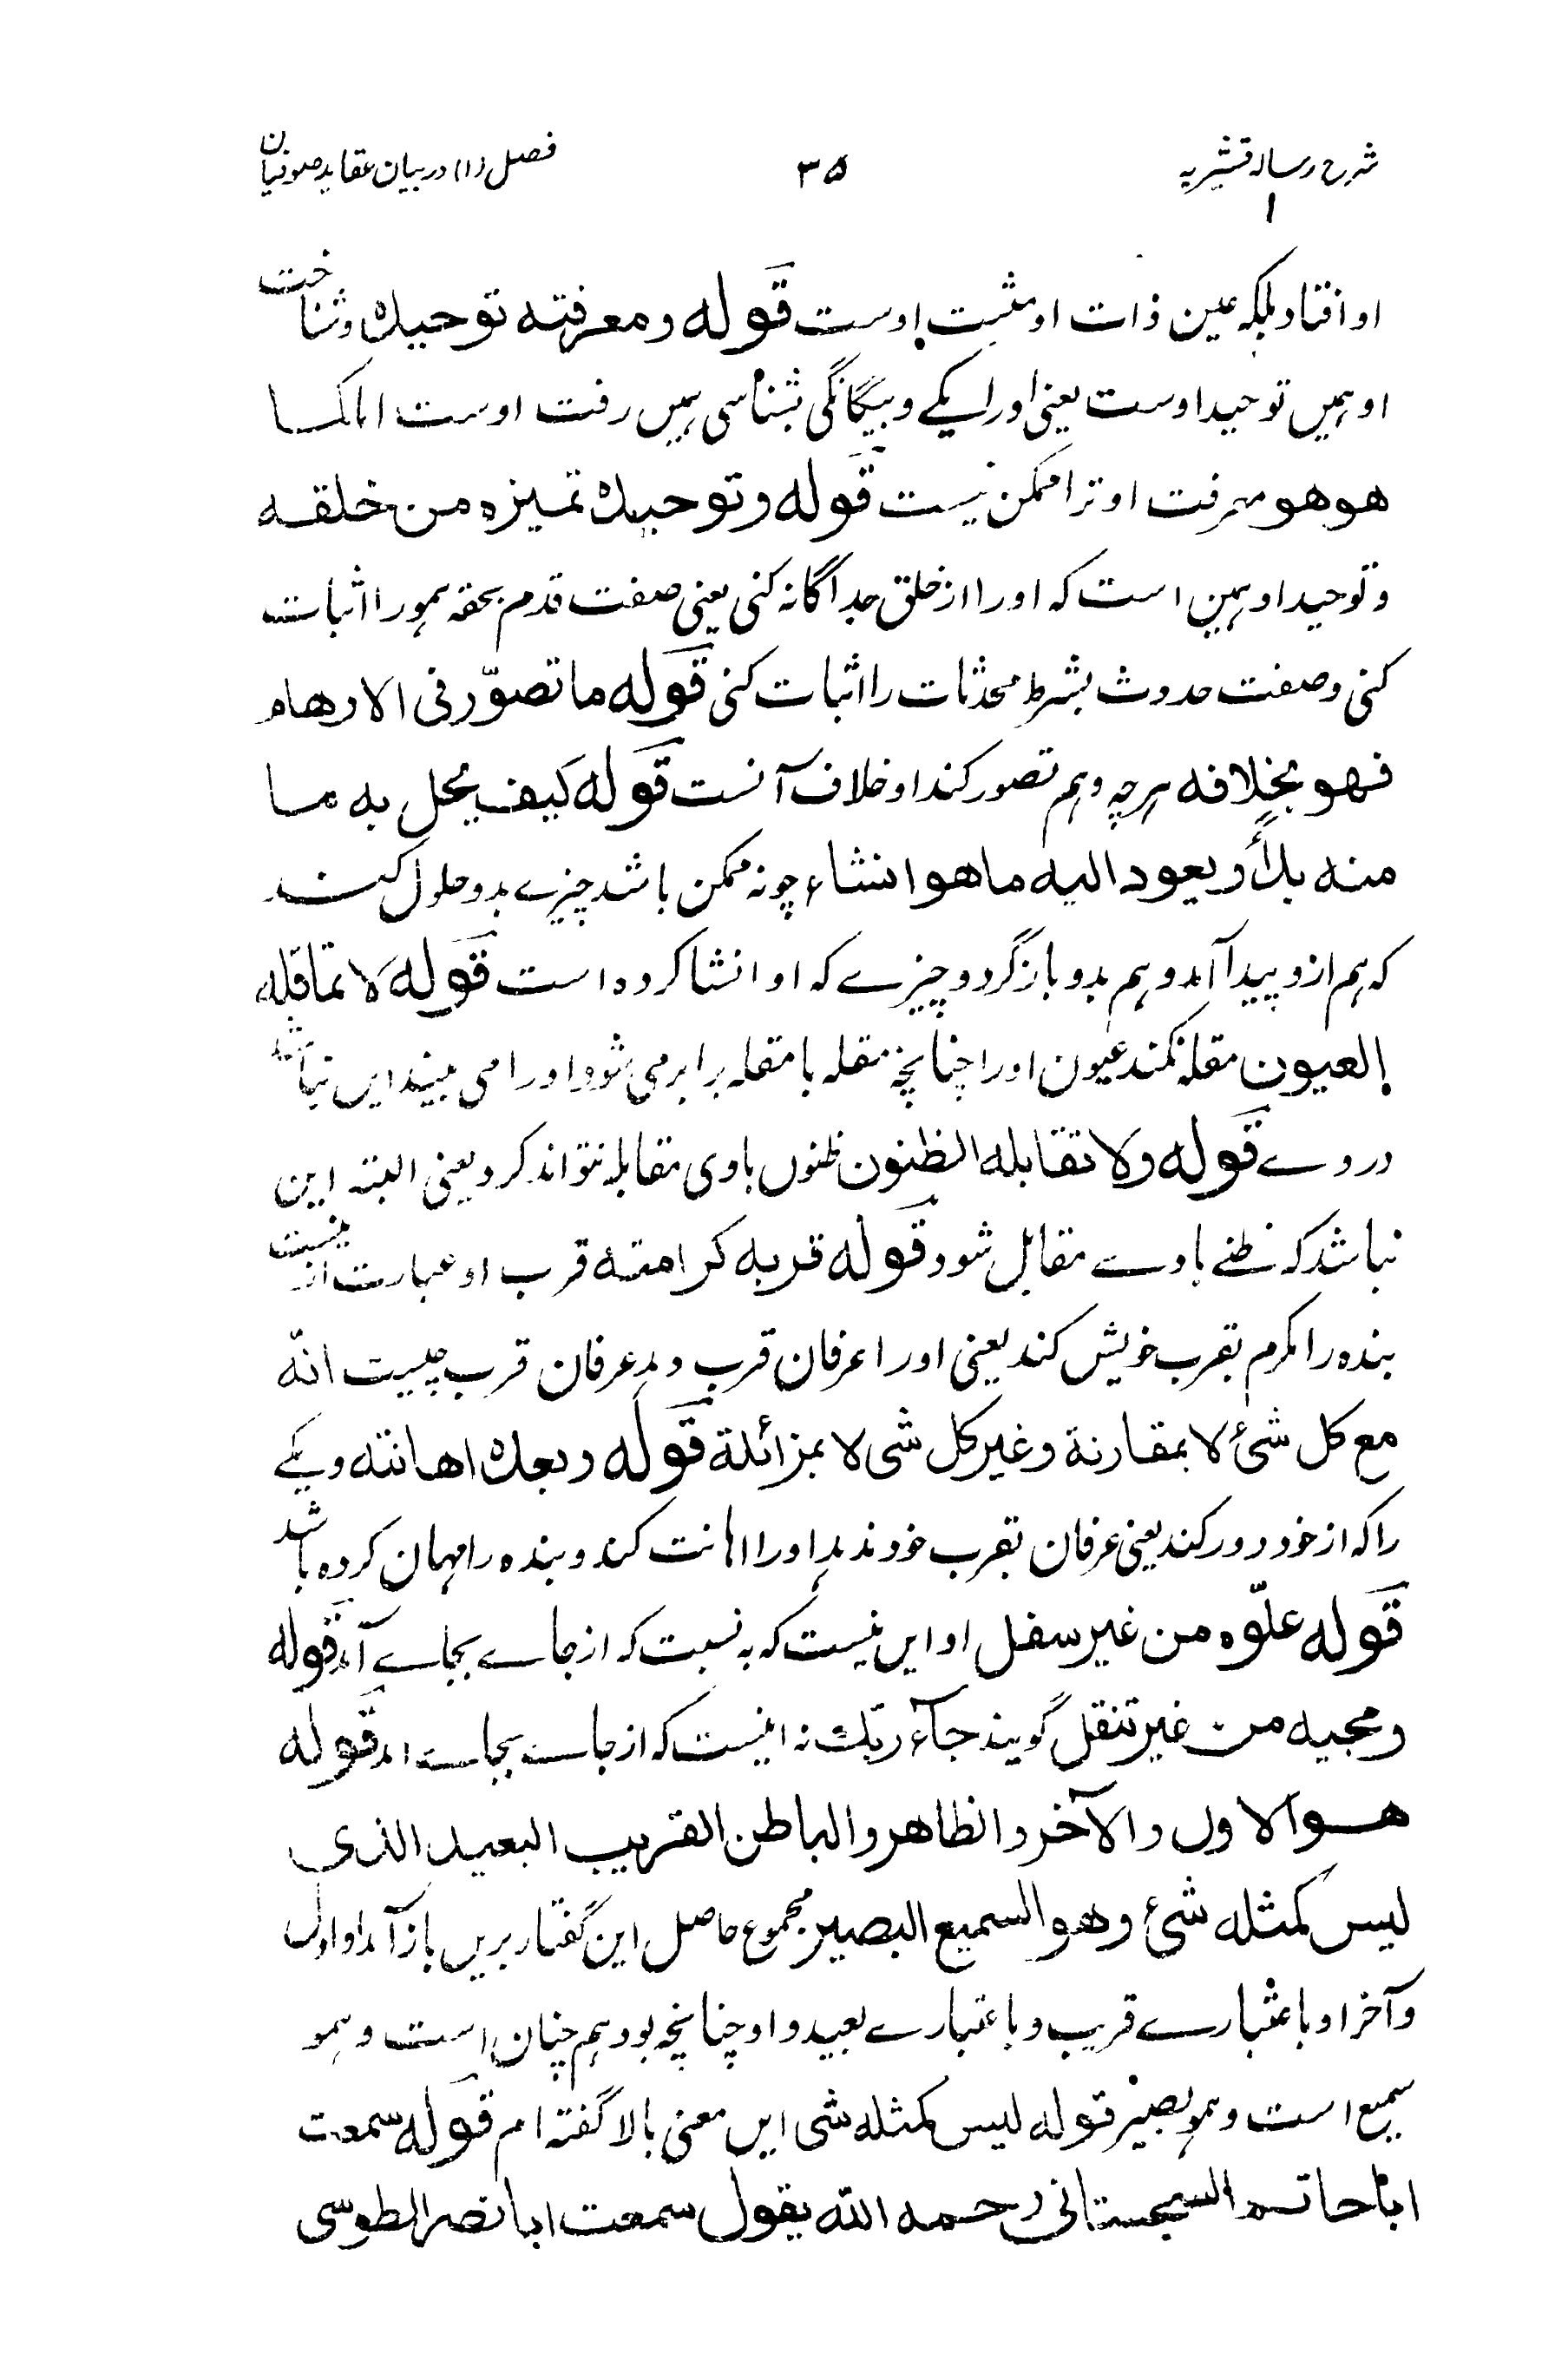 شرح رساله قشیریه
۳۵
فصل (۱) در بیان عقاید صوفیان
۱
او افتاد بلکه عین ذات او مثبت اوست قوله ومعرفته توحیده وشناخت
او ہمیں توحید اوست یعنی اورا یکے و بیگانگی بشناسی ہمیں رفت اوست اما کما
هو هو معرفت او ترا ممکن نیست قوله وتوحیده تمیزه من خلقه
و توحید او ہمین است که اورا از خلق جداگانه کنی یعنی صفت قدم بحقه ہمورا اثبات
کنی و صفت حدوث بشرط محدثات را اثبات کنی قوله ما تصوّر فی الاوهام
فهو بخلافه ہرچہ وہم تصور کند او خلاف آنست قوله کیف یحل به ما
منه بدأ ویعود الیه ما هو انشاء چونہ ممکن باشد چیزے بدو حلول کند
کہ ہم ازو پیدا آمد و ہم بدو باز گردد چیزے کہ او انشا کرده است قوله لا تماقله
العیون مقلہ نکند عیون اورا چنانچہ مقلہ با مقلہ برابر می شود و اورا می بیند ایں نباشد
دروے قوله ولا تقابله الظنون ظنوں باوی مقابلہ نتواند کرد یعنی البتہ این
نباشد کہ ظنے باوے مقابل شود قوله قربه کرامته قرب او عبارت از نیست
بنده را مکرم بقرب خویش کند یعنی اورا عرفان قرب دہد عرفان قرب چیست انّه
مع کل شئ لا بمقارنة وغیر کل شی لا بمزائلة قوله وبعده اهانته و یکے
را کہ از خود دور کند یعنی عرفان بقرب خود ندہد اورا اہانت کند و بنده را مہان کرده باشد
قوله علوّه من غیر سفل او ایں نیست کہ بہ نسبت کہ از جاے بجاے آمد قوله
ومجیه من غیر تنقل گویند جآء ربّك نہ اینست کہ از جاے بجاے آمد قوله
هو الاول والآخر والظاهر والباطن القریب البعید الذی
لیس کمثله شئ وهو السمیع البصیر مجموع حاصل این گفتار بریں باز آمد او اول
و آخر او باعتبارے قریب و باعتبارے بعید و او چنانچہ بود ہم چنان است و ہمو
سمیع است و ہمو بصیر قوله لیس کمثله شی ایں معنی بالا گفته ام قوله سمعت
ابا حاتم السجستانی رحمه الله یقول سمعت ابا نصر الطوسی